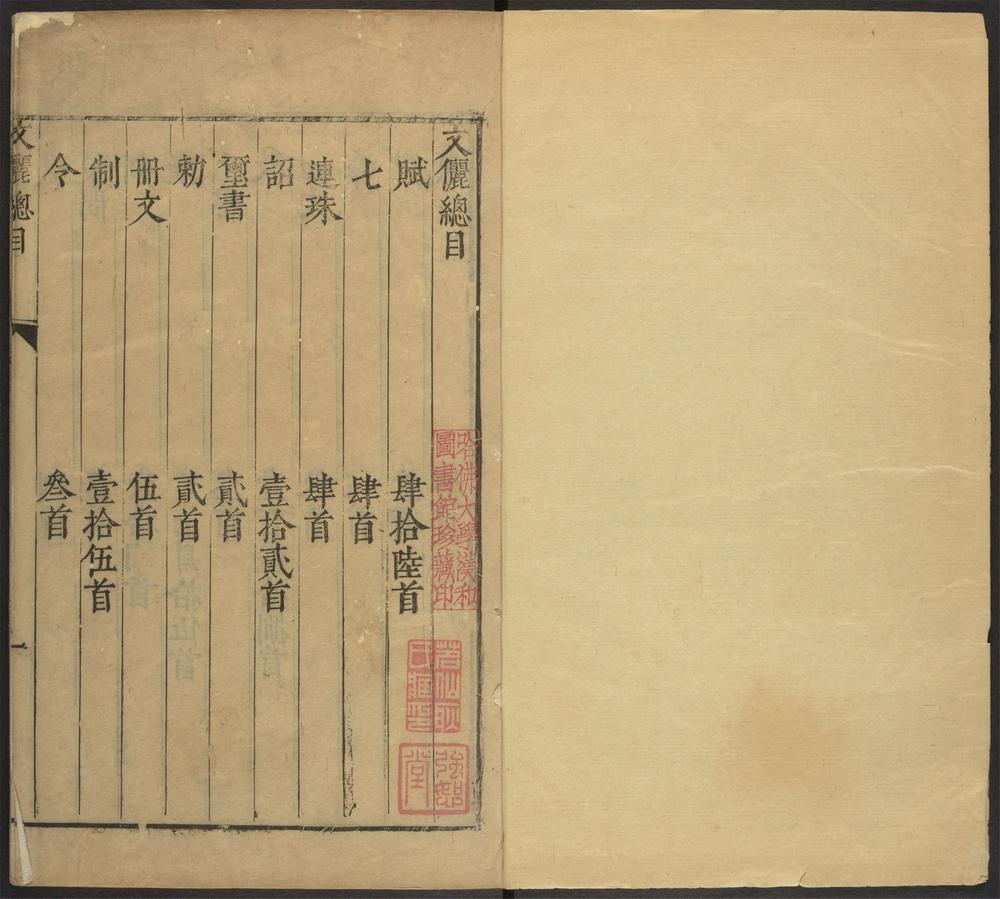 文儷總目
賦 肆拾陸首
七 肆首
連珠 肆首
詔 壹拾貳首
璽書 貳首
勅 貳首
冊文 伍首
制 壹拾伍首
令 叄首
文儷總目
一
哈佛大學漢和
圖書館珍藏印
強恕
堂